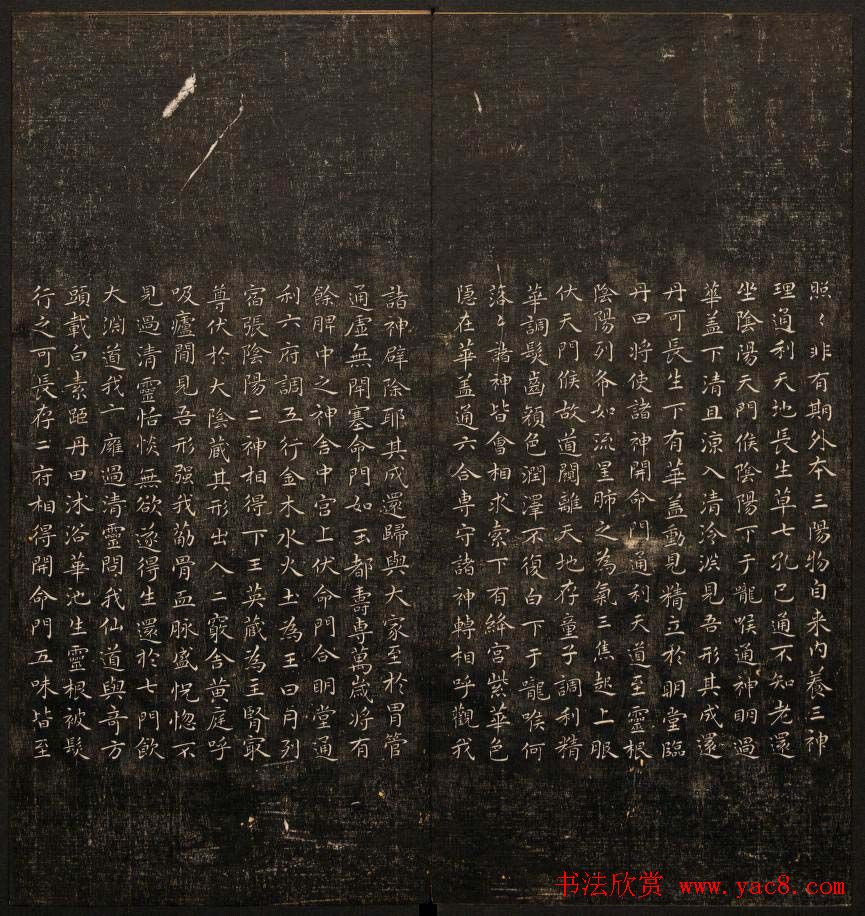 照〻非有期外本三陽物自来内養三神
理通利天地長生草七孔已通不知老還
坐陰陽天門候陰陽下于嚨喉通神明過
華盖下清且涼入清泠淵見吾形其成還
丹可長生下有華盖動見精立於明堂臨
丹田將使諸神開命門通利天道至靈根
陰陽列布如流星肺之為氣三焦起上服
伏天門候故道闚離天地存童子調利精
華調髮齒顔色潤澤不復白下于嚨喉何
落〻諸神皆會相求索下有絳宫紫華色
隱在華盖通六合専守諸神轉相呼觀我
諸神辟除耶其成還歸與大家至於胃管
通虚無閉塞命門如玉都壽専萬歲将有
餘脾中之神舍中宫上伏命門合明堂通
利六府調五行金木水火土為王日月列
宿張陰陽二神相得下玉英蔵為主腎最
尊伏於大陰蔵其形出入二竅舍黄庭呼
吸廬間見吾形强我筋骨血脉盛怳惚不
見過清靈恬惔無欲遂得生還於七門飲
大淵道我亠廱過清靈問我仙道與奇方
頭載白素距丹田沐浴華池生靈根被髮
行之可長存二府相得開命門五味皆至
书法欣赏 www.yac8.com